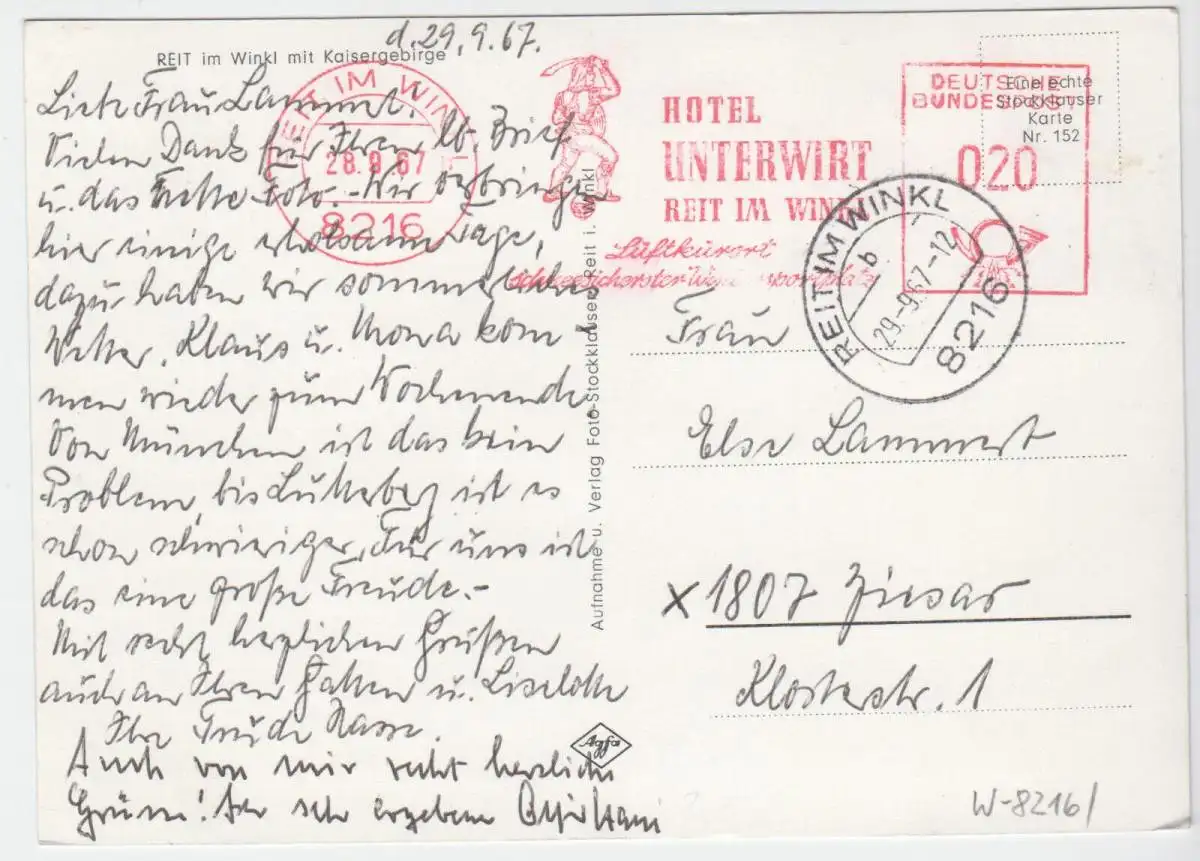 d. 29.9.67.
REIT im Winkl mit Kaisergebirge
Liebe Frau Lammert!
Vielen Dank für Ihren lb. Brief
u. das nette Foto. - Wir verbringen
hier einige erholsame Tage,
dazu haben wir sommerliches
Wetter. Klaus u. Mona kom-
men wieder zum Wochenende
Von München ist das kein
Problem, bis Lutterberg ist es
schon schwieriger. Für uns ist
das eine große Freude.-
Mit recht herzlichen Grüßen
auch an Ihren Gatten u. Liselotte
Ihre Trude
Auch von mir recht herzliche
Grüsse! Ihr sehr ergebener
REIT IM WINKL
28.9.67
8216
HOTEL
UNTERWIRT
REIT IM WINKL
Luftkurort
schneesichersten Wintersportplatz
DEUTSCHE
BUNDESPOST
020
Eine echte
Stockklauser
Karte
Nr. 152
REIT IM WINKL
b
29.-9.67-12
8216
Aufnahme u. Verlag Foto-Stockklauser, Reit i. Winkl
Frau
Else Lammert
x 1807 Ziesar
Klosterstr. 1
Agfa
W-8216/